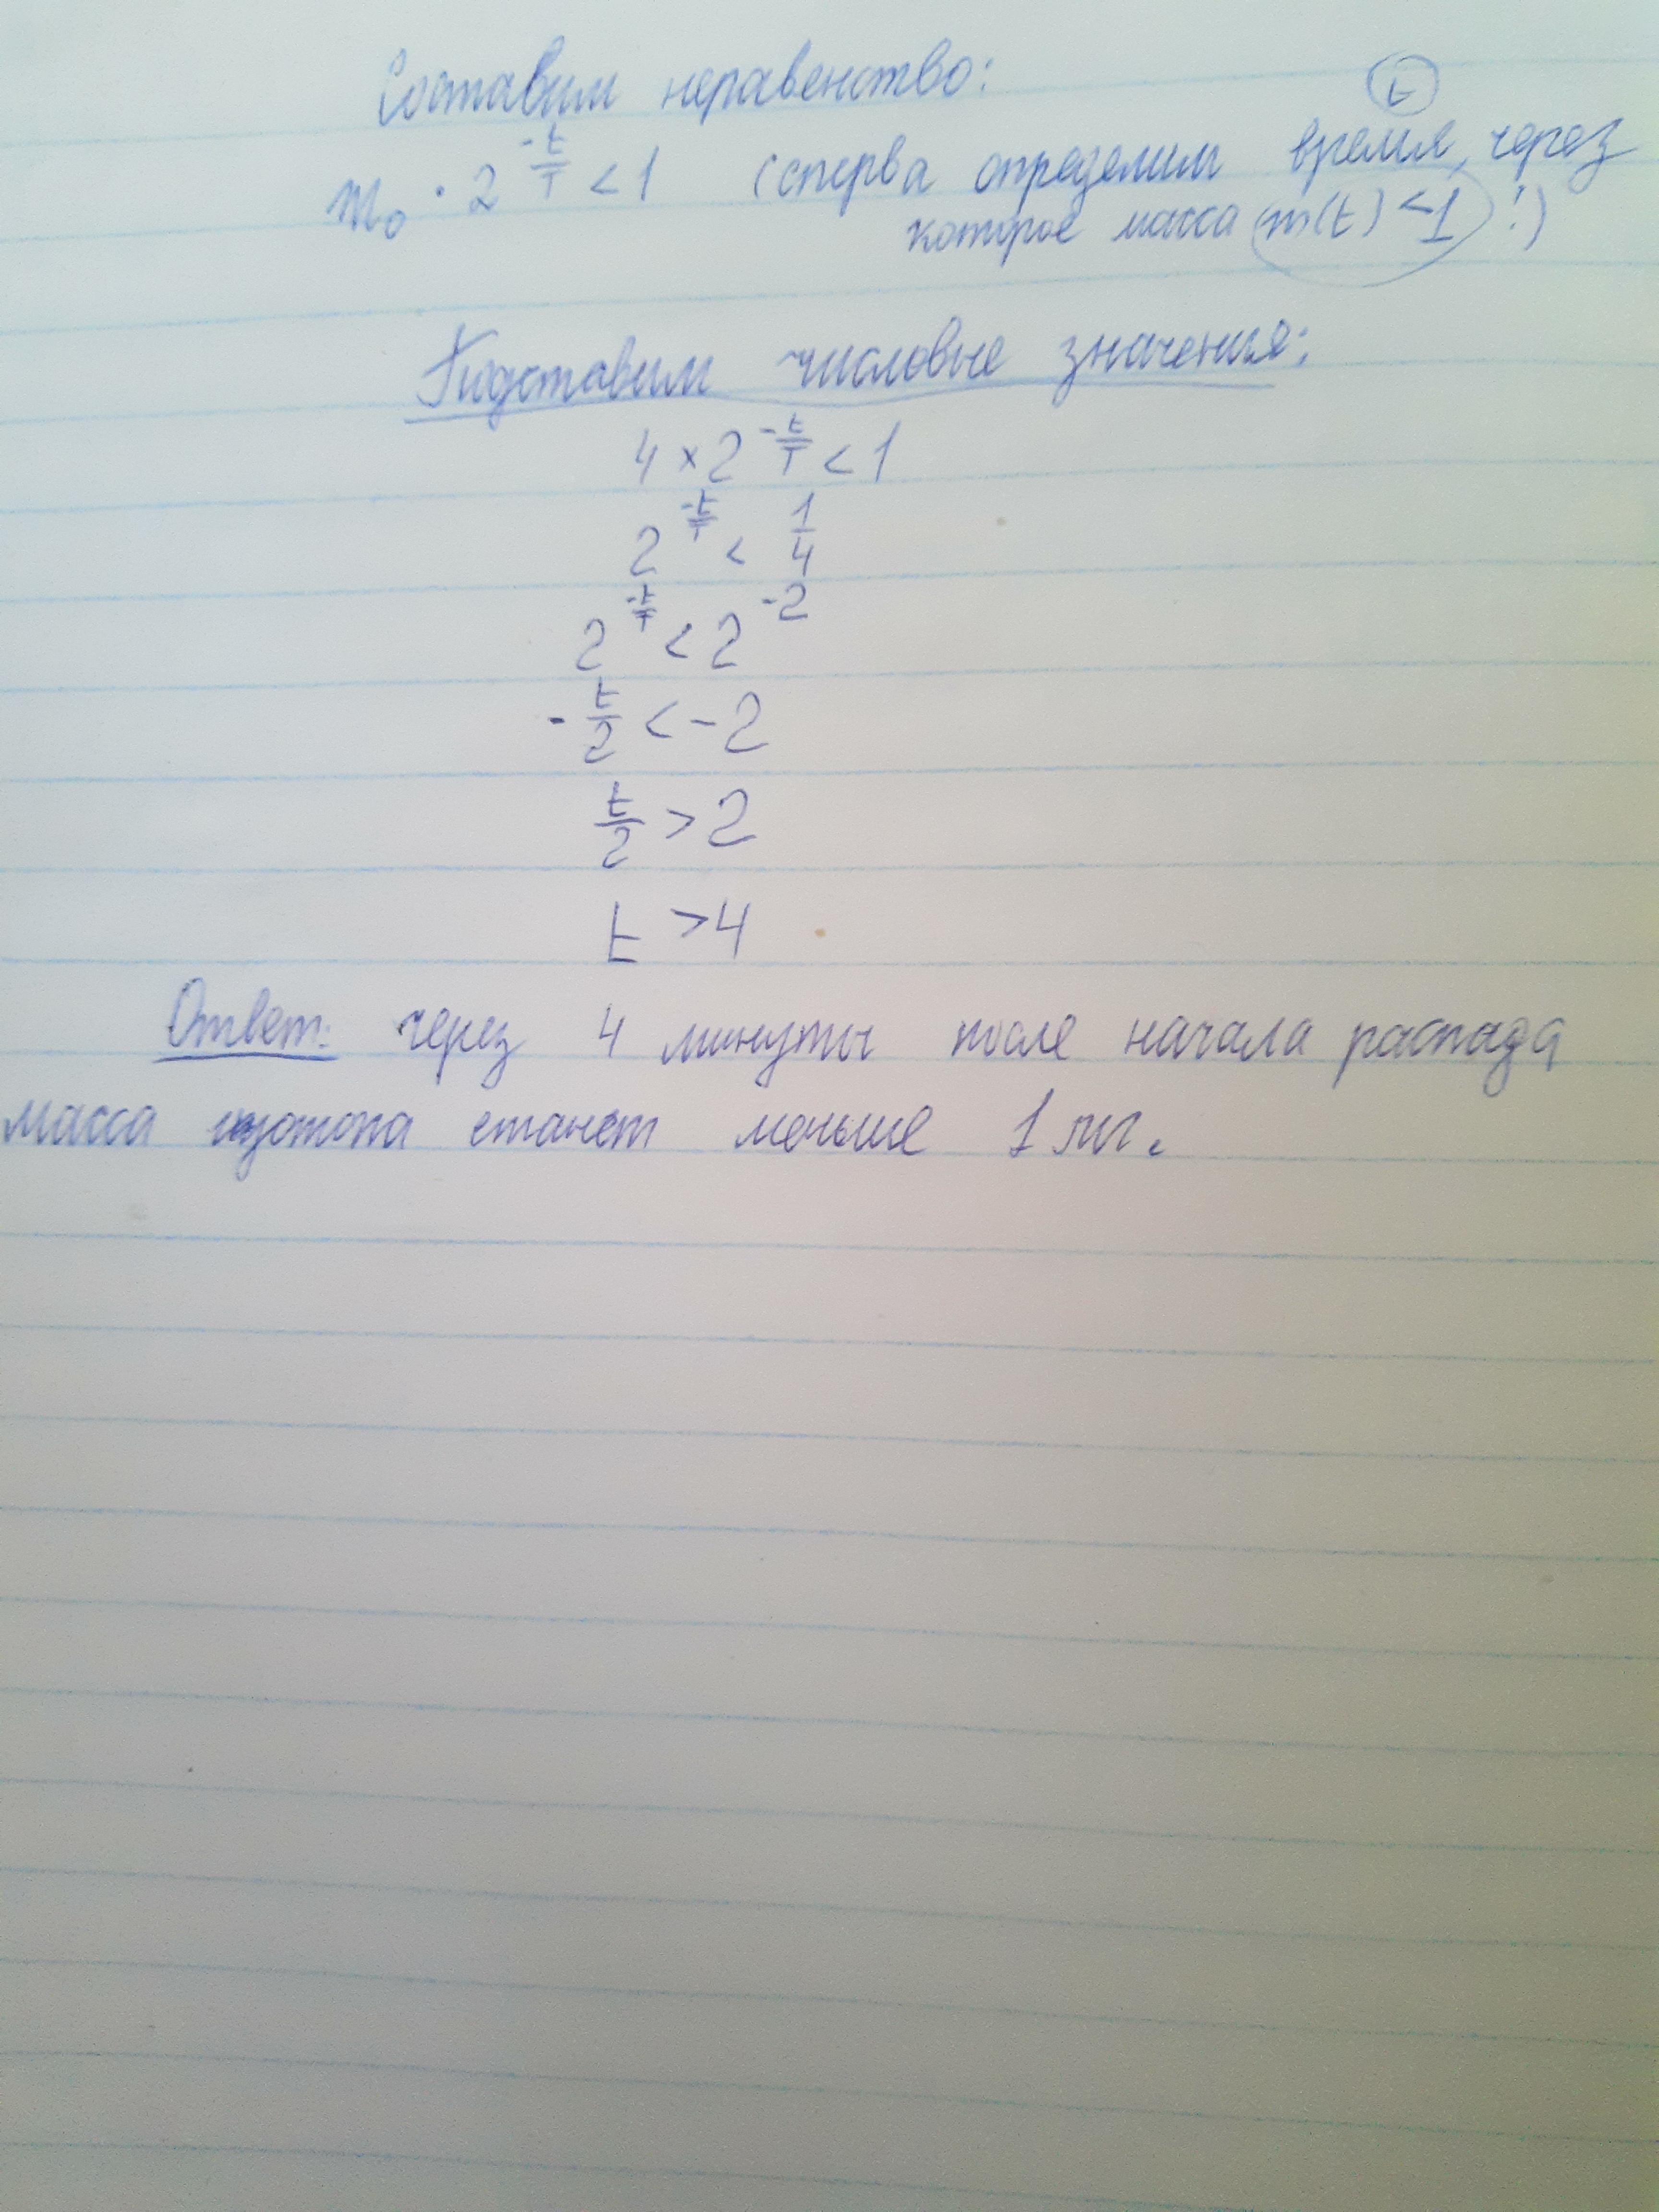 Составим неравенство:
t
m₀ · 2^(-t/T) < 1 (сперва определим время, через
которое масса m(t) < 1 !)
Подставим числовые значения:
4 × 2^(-t/T) < 1
2^(-t/T) < 1/4
2^(-t/T) < 2^(-2)
- t/2 < -2
t/2 > 2
t > 4
Ответ: через 4 минуты после начала распада
масса изотопа станет меньше 1 мг.